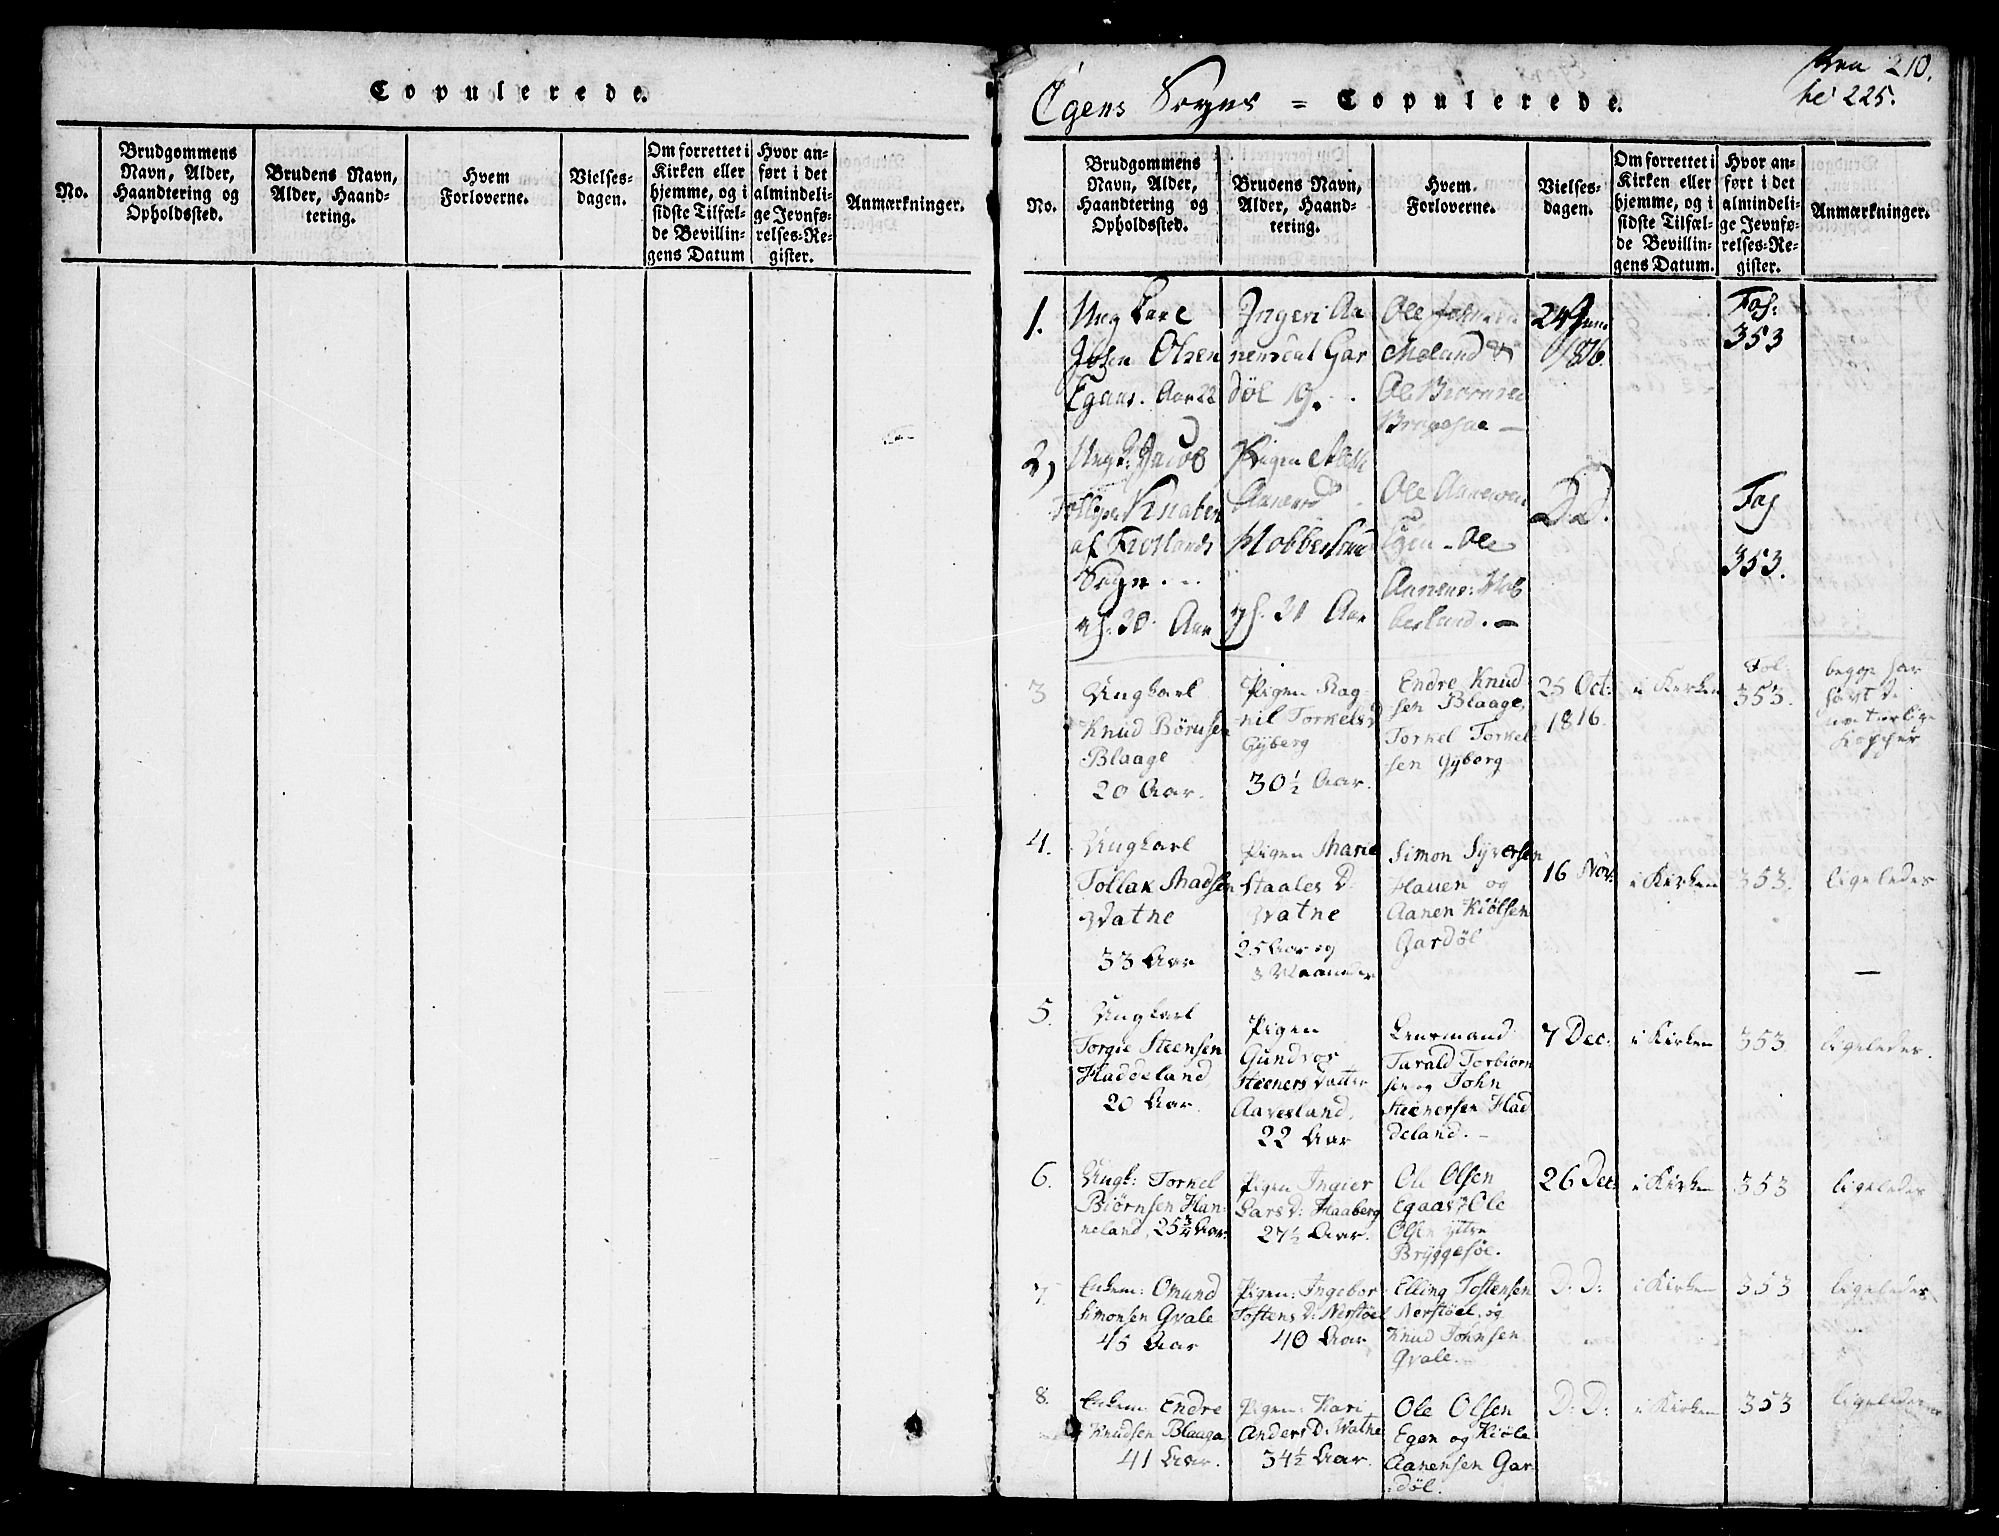 Copulerede.
No.
Brudgommens
Navn, Alder,
Haandtering og
Opholdssted.
Brudens Navn,
Alder, Haand-
tering.
Hvem
Forloverne.
Vielses-
dagen.
Om forrettet i
Kirken eller
hjemme, og i
sidste Tilfæl-
de Bevillin-
gens Datum
Hvor an-
ført i det
almindeli-
ge Jevnfø-
relses-Re-
gister.
Anmærkninger.
210.
225.
Egens Sogns = Copulerede.
No.
Brudgommens
Navn, Alder,
Haandtering og
Opholdssted.
Brudens Navn,
Alder, Haand-
tering.
Hvem.
Forloverne.
Vielses-
dagen.
Om forrettet i
Kirken eller
hjemme, og i
sidste Tilfæl-
de Bevillin-
gens Datum.
Hvor an-
ført i det
almindeli-
ge Jevnfø-
relses-Re-
gister.
Anmærkninger.
1.
Ung Karl
John Olsen
Egaas. Aar 22
Ingeri Aa
nensdat Gar
döl 19.
Ole
Moland &
Ole Biørnsen
24 Juni
1816.
353
2)
Ungk: Jacob
Knaben
af Frolands
Sogn.
30. Aar
Pigen
Aanensd
Mobberland
31 Aar
Ole Aanensen
Egen - Ole
Aanens: Mob
berland. -
D.D.
353.
3
Ungkarl
Knud Börnsen
Blaage
20 Aar.
Pigen Rag-
nil Torkels D
Gyberg
30½ Aar.
Endre Knud
sen Blaage,
Torkel Torkel
sen Gyberg
25 Oct:
1816.
i Kirken
Fol:
353.
begge har
havt de
naturlige
Kopper
4.
Ungkarl
Tollak Madsen
Vatne
33 Aar
Pigen Marie
Staales D:
Vatne
25 Aar og
3 Maaneder
Simon Syversen
Hauen og
Aanen Kiölsen
Gardöl
16 Nov:
i Kirken
353.
ligeledes
5.
Ungkarl
Torgie Steensen
Haddeland
20 Aar.
Pigen
Gundror
Steeners Datter
Aavesland.
22 Aar
Lensmand
Tarald Torbiørn
sen og John
Steenersen Had
deland. -
7 Dec:
i Kirken
353.
ligeledes.
6.
Ungk: Torkel
Biörnsen Hun-
neland, 25¾ Aar.
Pigen Ingier
Lars D: Haaberg
27½ Aar.
Ole Olsen
Egaas, Ole
Olsen ytre
Bryggesöe.
26 Dec:
i Kirken
353
ligeledes
7.
Enkem: Omund
Simonsen Qvale
45 Aar
Pigen: Ingebor
Tostens D: Nerstöel
40 Aar
Elling Tostensen
Nerstöel, og
Knud Johnsen
Qvale.
D: D:
i Kirken
353
ligeledes
8.
Enkem Endre
Knudsen Blaage
41 Aar.
Pigen: Kari
Anders D: Watne
34½ Aar.
Ole Olsen
Egen og Kiöle
Aanensen Gar-
döl.
D: D:
i Kirken
353
ligeledes